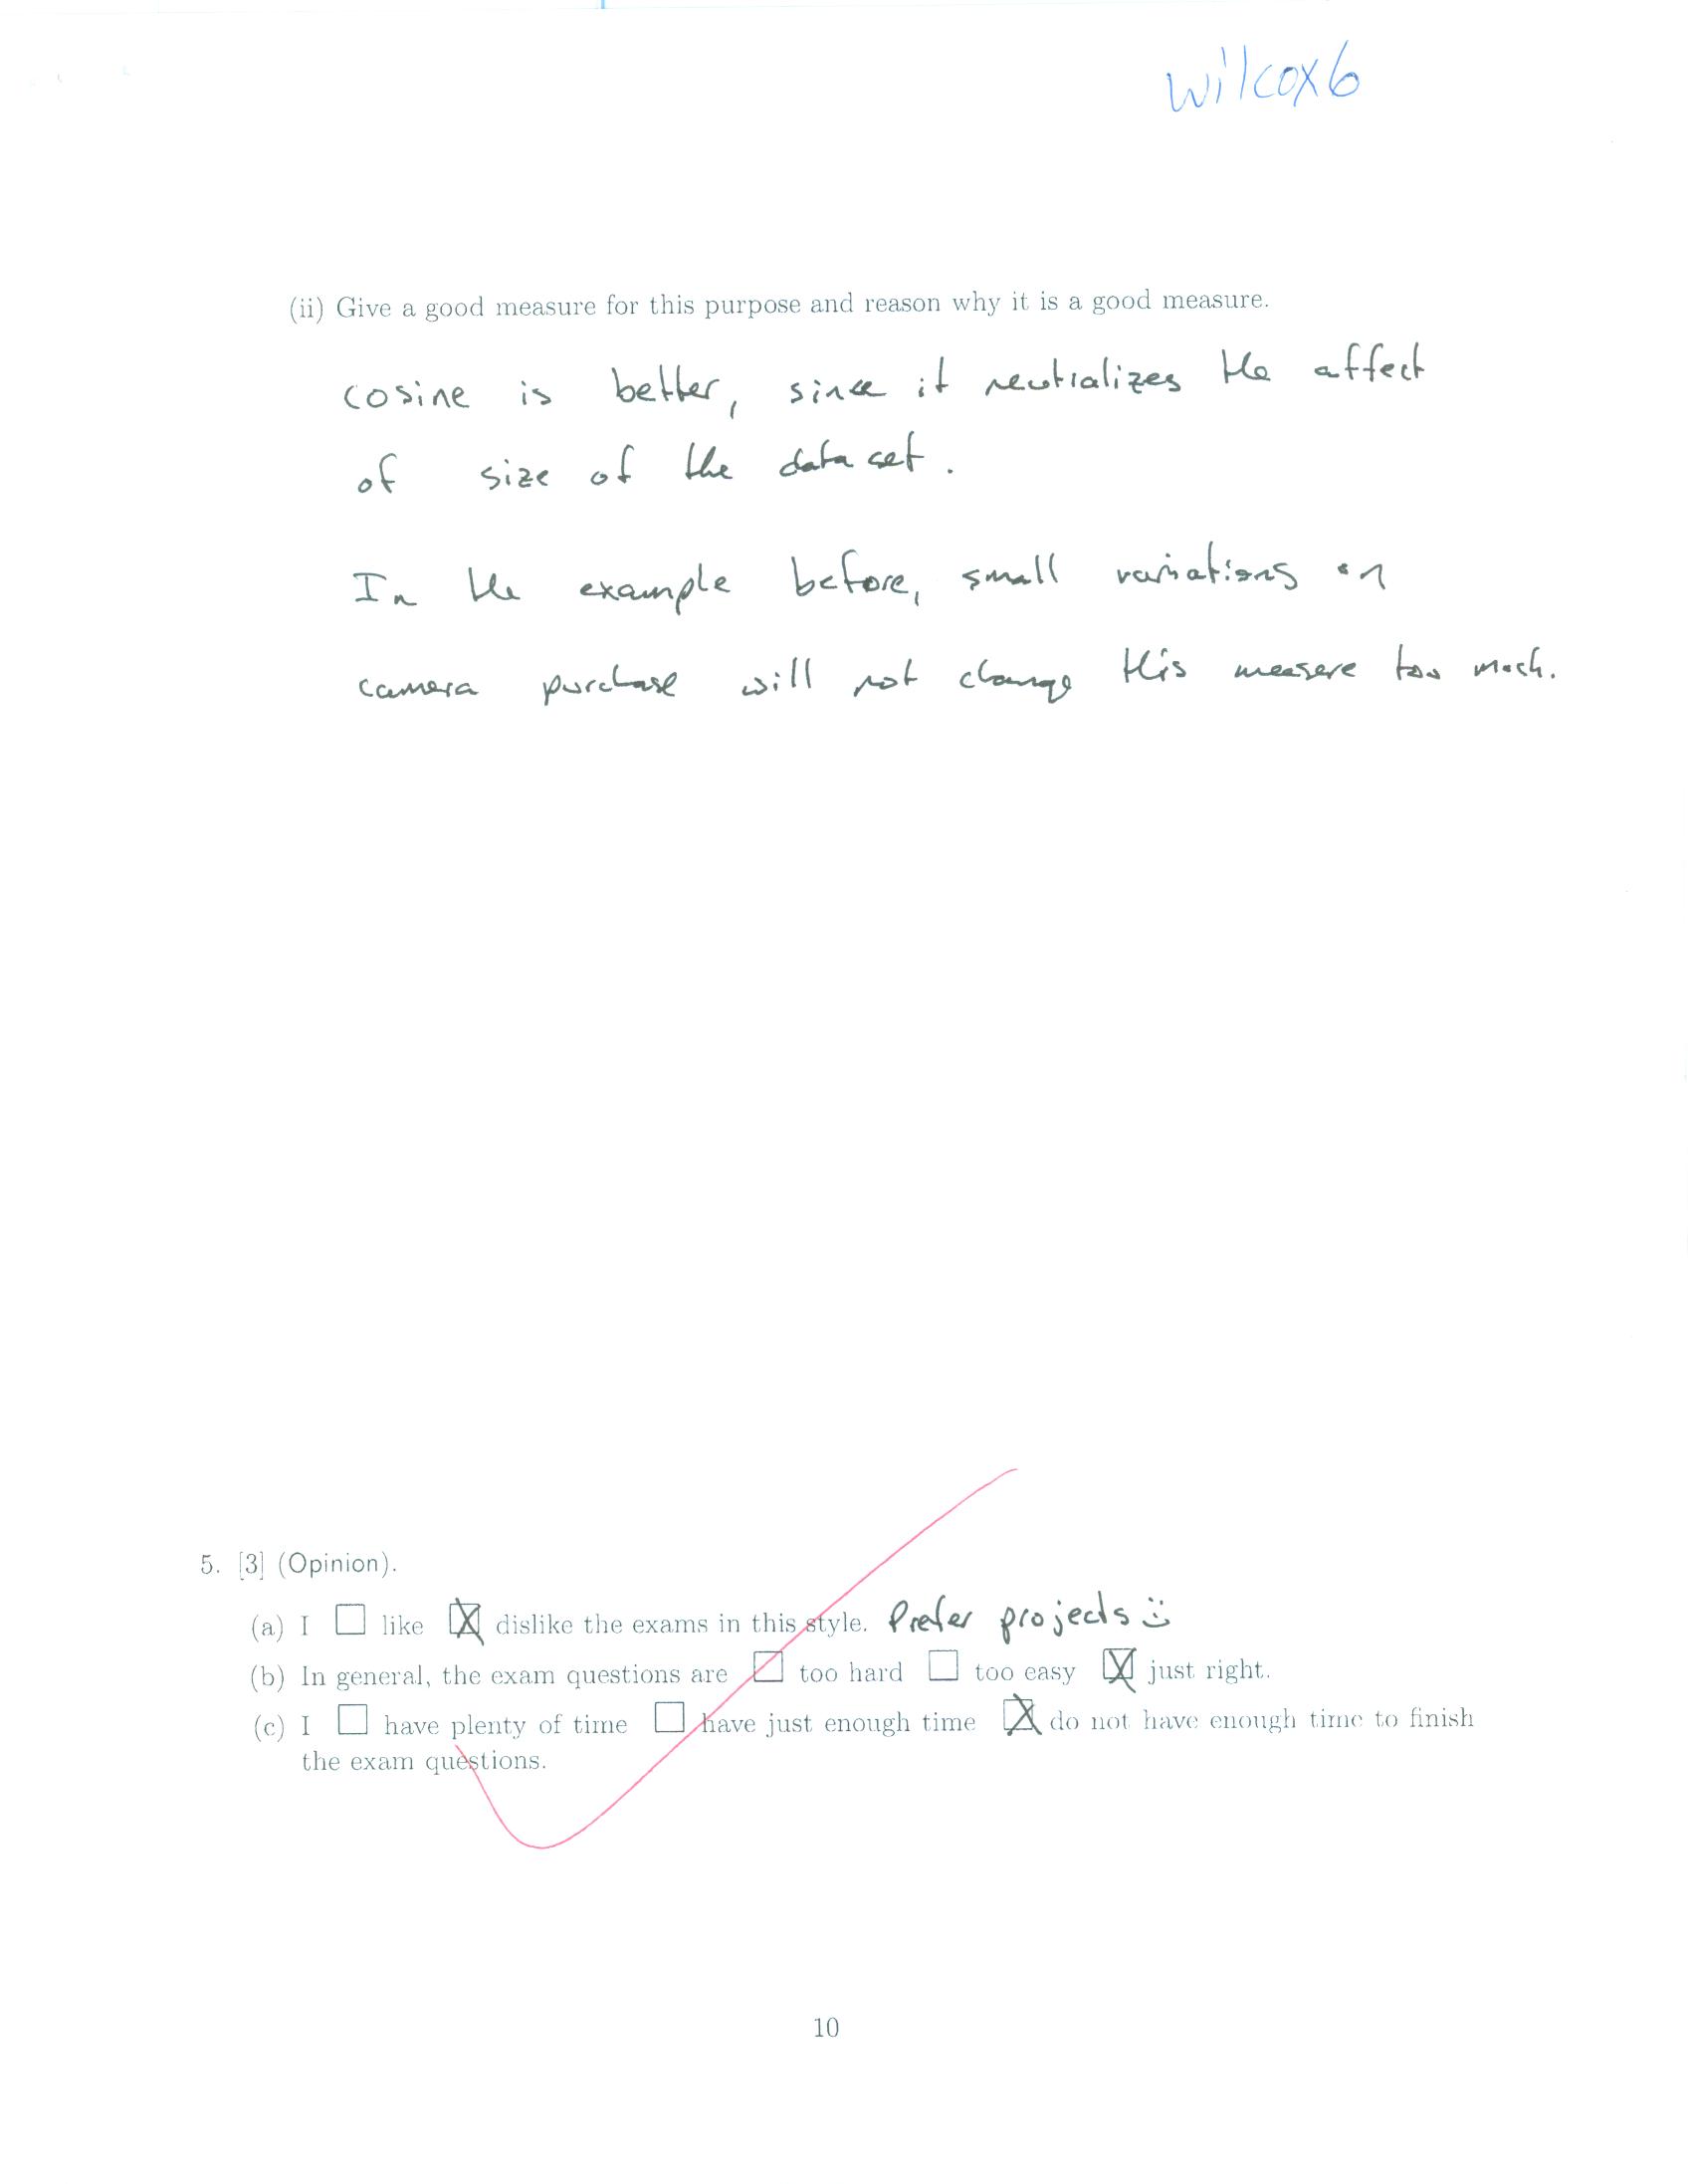 wilcox6
(ii) Give a good measure for this purpose and reason why it is a good measure.
cosine is better, since it neutralizes the affect
of size of the data set.
In the example before, small variations on
camera purchase will not change this measere too much.
5. [3] (Opinion).
(a) I ☐ like ☒ dislike the exams in this style. Prefer projects :)
(b) In general, the exam questions are ☐ too hard ☐ too easy ☒ just right.
(c) I ☐ have plenty of time ☐ have just enough time ☒ do not have enough time to finish
the exam questions.
10